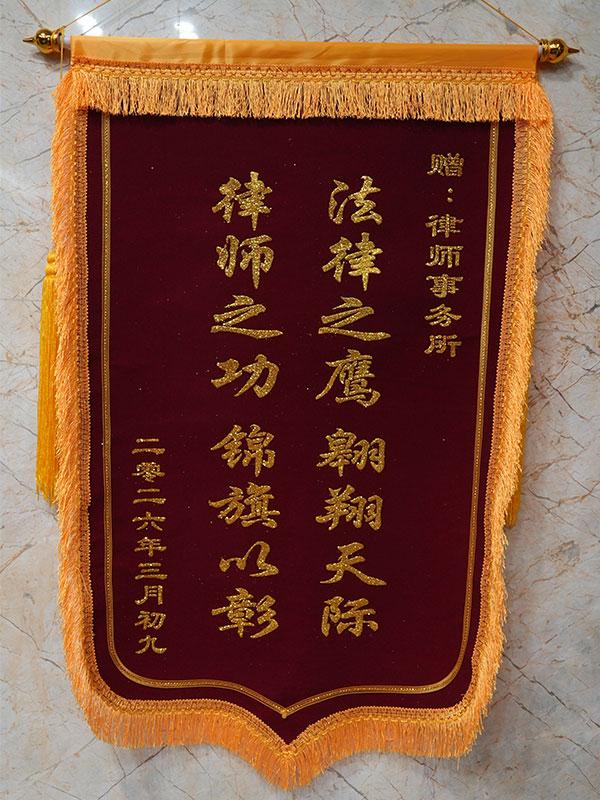 赠：律师事务所
法律之鹰 翱翔天际
律师之功 锦旗以彰
二零二六年三月初九